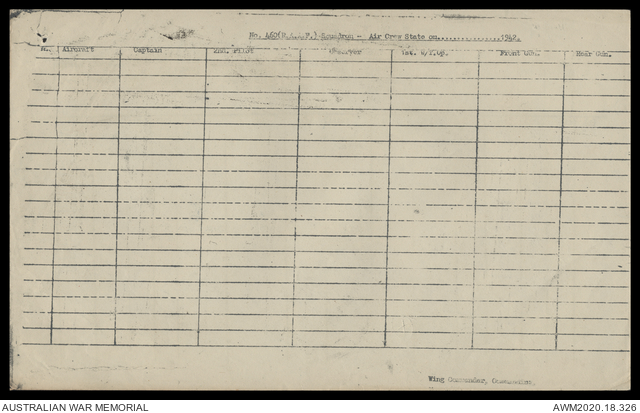 No. 460(R.A.A.F.) Squadron - Air Crew State on...............1942.
Aircraft Captain 2nd. Pilot Observer 1st. W/T.Op. Front Gun. Rear Gun.
Wing Commander, Commanding
AUSTRALIAN WAR MEMORIAL AWM2020.18.326